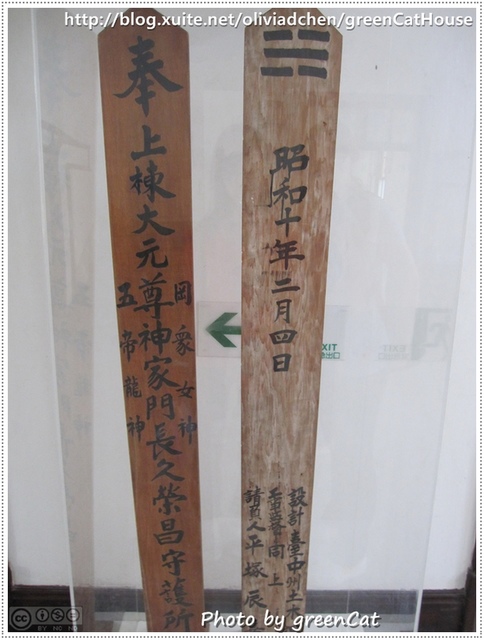 http://blog.xuite.net/oliviadchen/greenCatHouse
奉上棟大元尊神家門長久榮昌守護所
罔象女神
五帝龍神
昭和十年二月四日
設計臺中州土
同上
請負人平塚辰
EXIT
出口
Photo by greenCat